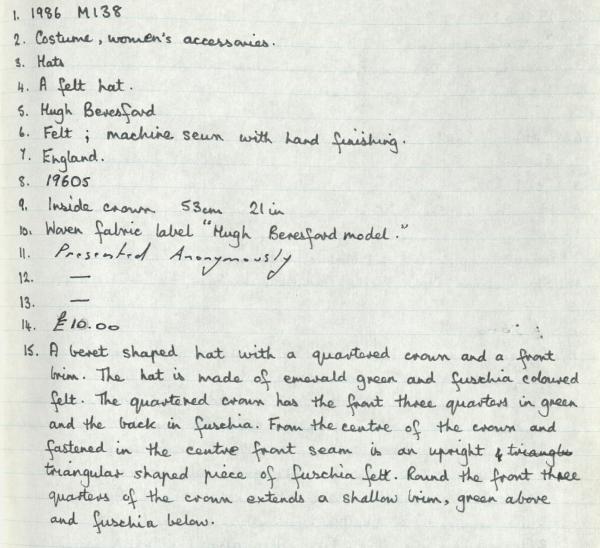 1. 1986 M138
2. Costume, women's accessories.
3. Hats
4. A felt hat.
5. Hugh Beresford
6. Felt; machine sewn with hand finishing.
7. England.
8. 1960s
9. Inside crown 53cm 21in
10. Woven fabric label "Hugh Beresford model."
11. Presented Anonymously
12. —
13. —
14. £10.00
15. A beret shaped hat with a quartered crown and a front
brim. The hat is made of emerald green and fuschia coloured
felt. The quartered crown has the front three quarters in green
and the back in fuschia. From the centre of the crown and
fastened in the centre front seam is an upright
triangular shaped piece of fuschia felt. Round the front three
quarters of the crown extends a shallow brim, green above
and fuschia below.